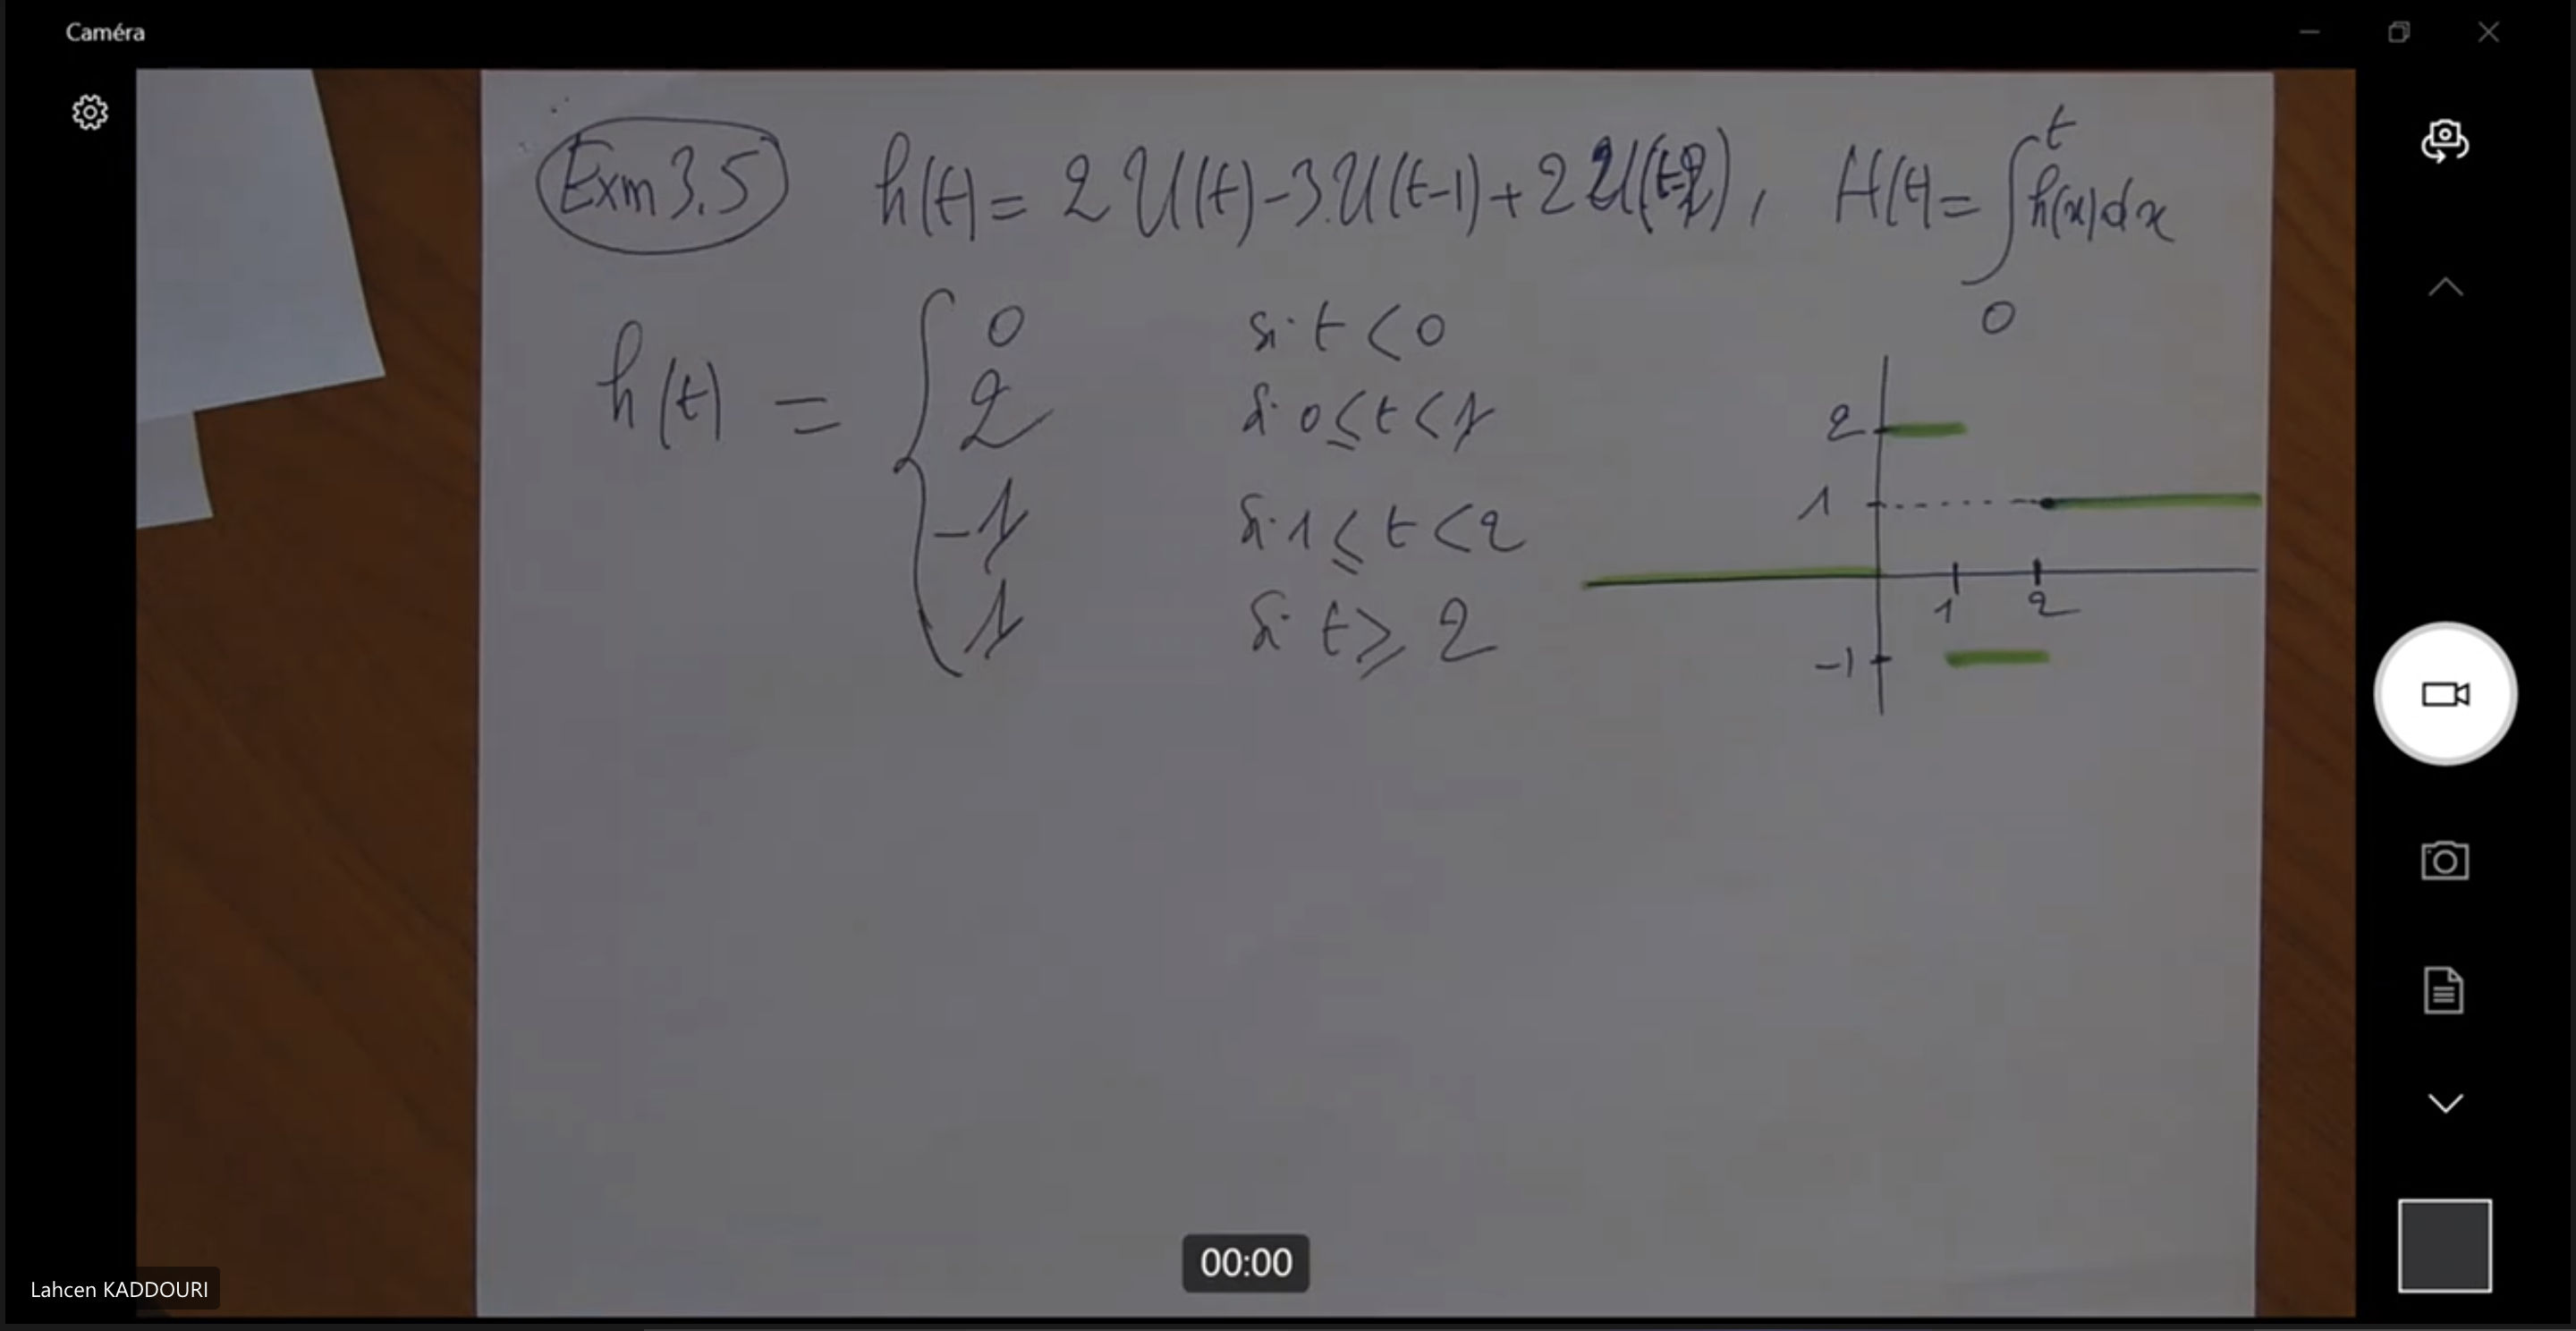 Caméra
Exm 3.5 h(t) = 2 U(t) - 3.U(t-1) + 2 U(t-2), H(t) = ∫₀ᵗ h(x)dx
h(t) = { 0 si t < 0
2 si 0 ≤ t < 1
-1 si 1 ≤ t < 2
1 si t ≥ 2
2
1
1 2
-1
00:00
Lahcen KADDOURI